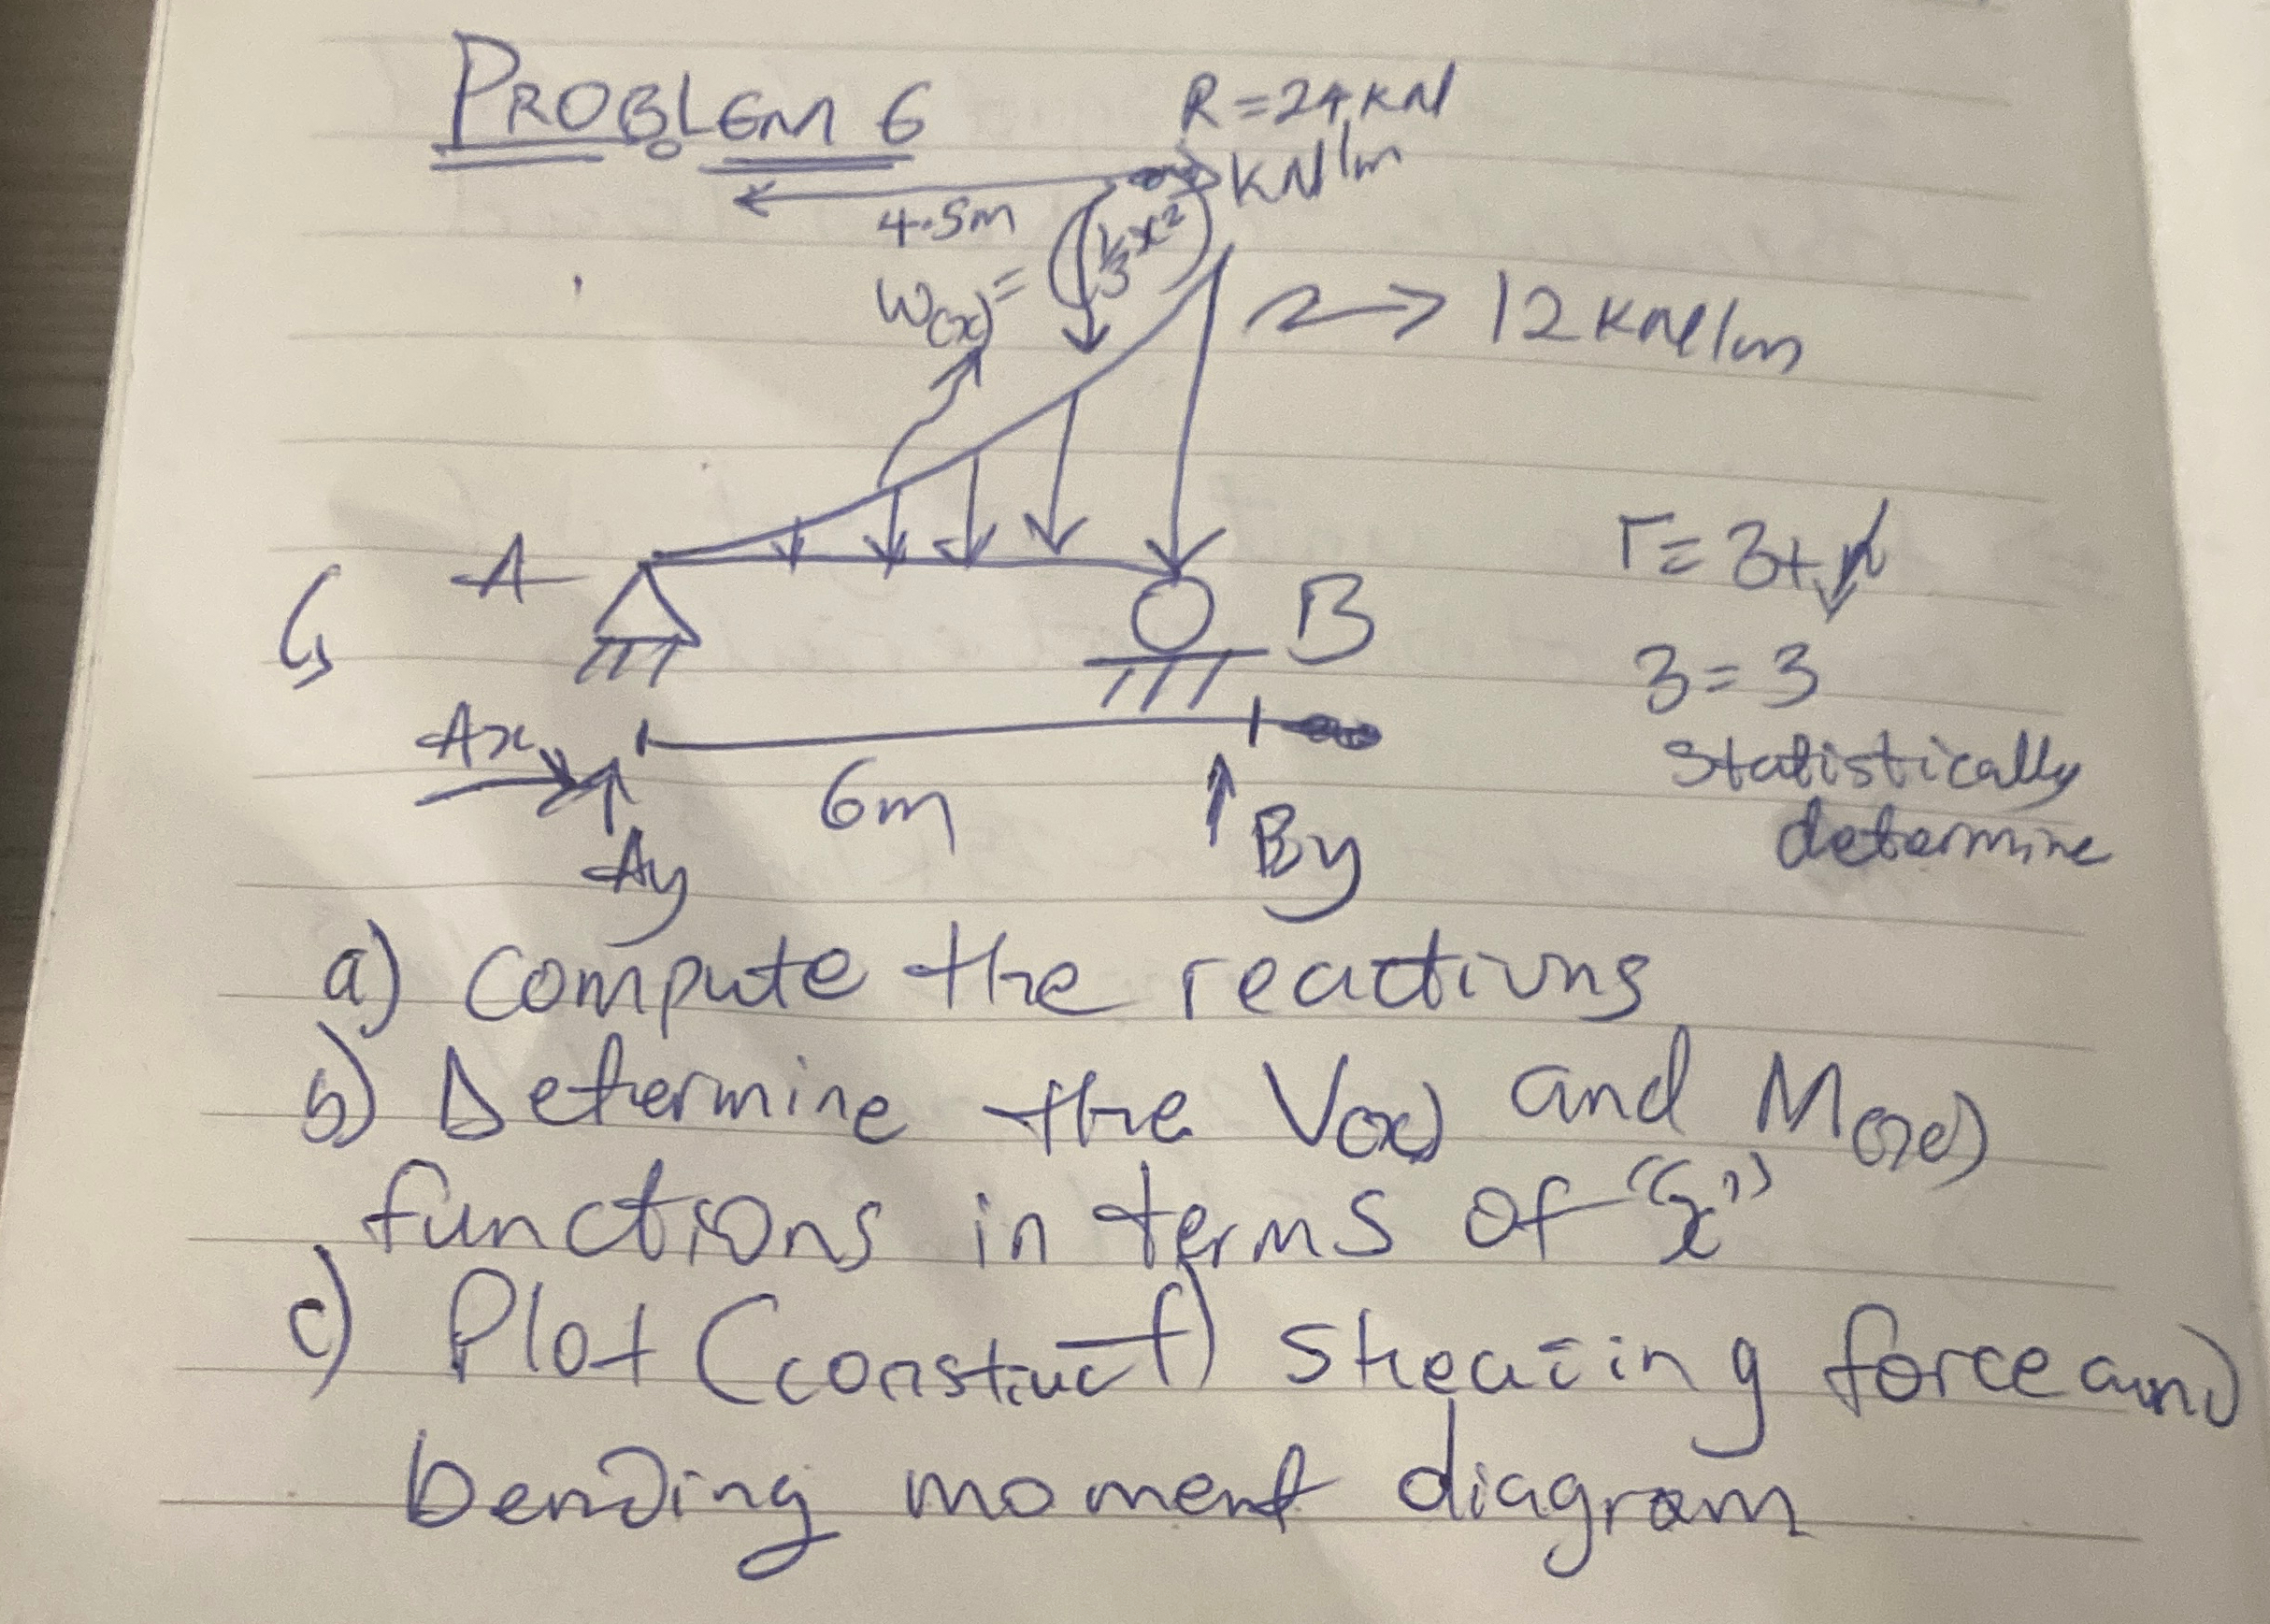 PROBLEM 6
R = 24 KN
KN/m
4.5m
W(x) = (1/3 x²)
12 KN/m
A
B
r = 3 + n
3 = 3
Statistically
determine
Ax
6m
Ay
By
a) compute the reactions
b) Determine the V(x) and M(x)
functions in terms of "x"
c) Plot (construct) shearing force and
bending moment diagram